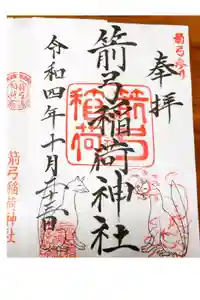 奉拝
箭弓稲荷神社
箭弓
稲荷
令和四年十月二十三日
箭弓稲荷神社